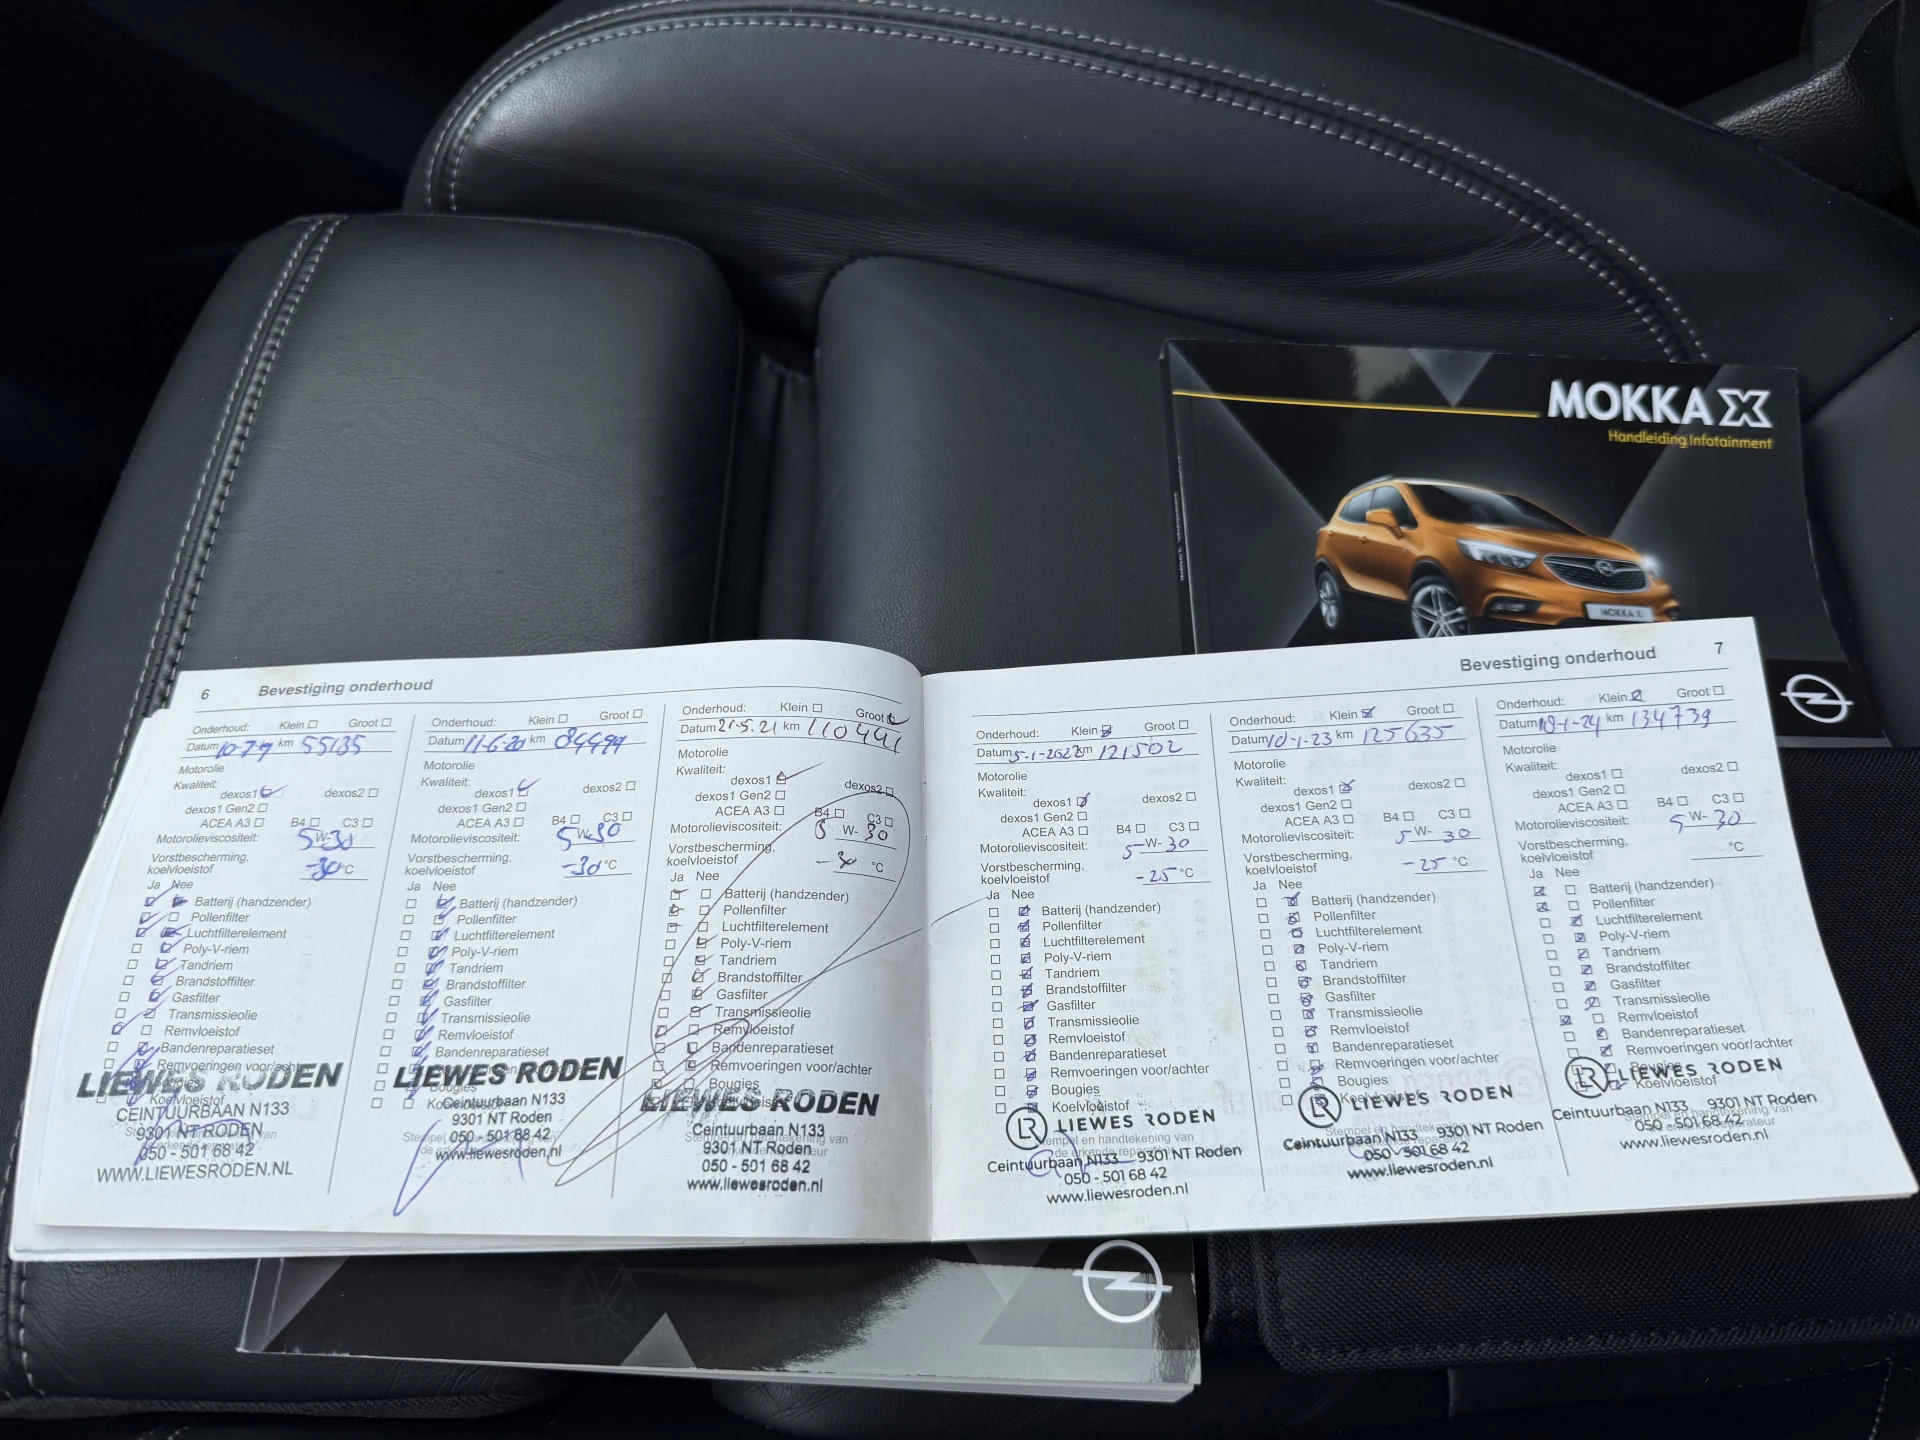 MOKKA X
Handleiding Infotainment
MOKKA X
6 Bevestiging onderhoud
Onderhoud: Klein Groot
Datum 10-7-19 km 55135
Motorolie
Kwaliteit:
dexos1 dexos2
dexos1 Gen2
ACEA A3 B4 C3
Motorolieviscositeit: 5 W-30
Vorstbescherming,
koelvloeistof -30 °C
Ja Nee
Batterij (handzender)
Pollenfilter
Luchtfilterelement
Poly-V-riem
Tandriem
Brandstoffilter
Gasfilter
Transmissieolie
Remvloeistof
Bandenreparatieset
Remvoeringen voor/achter
Bougies
LIEWES RODEN
CEINTUURBAAN N133
9301 NT RODEN
050 - 501 68 42
WWW.LIEWESRODEN.NL
Onderhoud: Klein Groot
Datum 11-6-20 km 84499
Motorolie
Kwaliteit:
dexos1 dexos2
dexos1 Gen2
ACEA A3 B4 C3
Motorolieviscositeit: 5 W-30
Vorstbescherming,
koelvloeistof -30 °C
Ja Nee
Batterij (handzender)
Pollenfilter
Luchtfilterelement
Poly-V-riem
Tandriem
Brandstoffilter
Gasfilter
Transmissieolie
Remvloeistof
Bandenreparatieset
Remvoeringen voor/achter
Bougies
LIEWES RODEN
Ceintuurbaan N133
9301 NT Roden
050 - 501 68 42
www.liewesroden.nl
Onderhoud: Klein Groot
Datum 21-5-21 km 110441
Motorolie
Kwaliteit:
dexos1 dexos2
dexos1 Gen2
ACEA A3 B4 C3
Motorolieviscositeit: 5 W-30
Vorstbescherming,
koelvloeistof -30 °C
Ja Nee
Batterij (handzender)
Pollenfilter
Luchtfilterelement
Poly-V-riem
Tandriem
Brandstoffilter
Gasfilter
Transmissieolie
Remvloeistof
Bandenreparatieset
Remvoeringen voor/achter
Bougies
LIEWES RODEN
Ceintuurbaan N133
9301 NT Roden
050 - 501 68 42
www.liewesroden.nl
Bevestiging onderhoud 7
Onderhoud: Klein Groot
Datum 5-1-2022 km 121502
Motorolie
Kwaliteit:
dexos1 dexos2
dexos1 Gen2
ACEA A3 B4 C3
Motorolieviscositeit: 5 W-30
Vorstbescherming,
koelvloeistof -25 °C
Ja Nee
Batterij (handzender)
Pollenfilter
Luchtfilterelement
Poly-V-riem
Tandriem
Brandstoffilter
Gasfilter
Transmissieolie
Remvloeistof
Bandenreparatieset
Remvoeringen voor/achter
Bougies
Koelvloeistof
LR LIEWES RODEN
Stempel en handtekening van
de erkende reparateur
Ceintuurbaan N133 9301 NT Roden
050 - 501 68 42
www.liewesroden.nl
Onderhoud: Klein Groot
Datum 10-1-23 km 125635
Motorolie
Kwaliteit:
dexos1 dexos2
dexos1 Gen2
ACEA A3 B4 C3
Motorolieviscositeit: 5 W-30
Vorstbescherming,
koelvloeistof -25 °C
Ja Nee
Batterij (handzender)
Pollenfilter
Luchtfilterelement
Poly-V-riem
Tandriem
Brandstoffilter
Gasfilter
Transmissieolie
Remvloeistof
Bandenreparatieset
Remvoeringen voor/achter
Bougies
Koelvloeistof
LR LIEWES RODEN
Ceintuurbaan N133 9301 NT Roden
050 - 501 68 42
www.liewesroden.nl
Onderhoud: Klein Groot
Datum 18-1-24 km 134739
Motorolie
Kwaliteit:
dexos1 dexos2
dexos1 Gen2
ACEA A3 B4 C3
Motorolieviscositeit: 5 W-30
Vorstbescherming,
koelvloeistof °C
Ja Nee
Batterij (handzender)
Pollenfilter
Luchtfilterelement
Poly-V-riem
Tandriem
Brandstoffilter
Gasfilter
Transmissieolie
Remvloeistof
Bandenreparatieset
Remvoeringen voor/achter
Bougies
Koelvloeistof
LR LIEWES RODEN
Ceintuurbaan N133 9301 NT Roden
050 - 501 68 42
www.liewesroden.nl